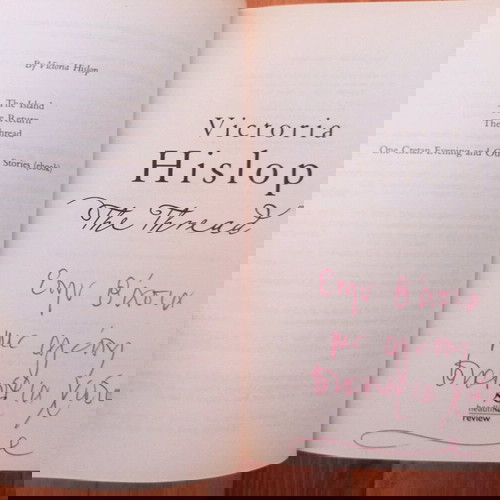 By Victoria Hislop
The Island
The Return
The Thread
One Cretan Evening and Other
Stories (ebook)
Victoria
Hislop
The Thread
Στην Βάσια
με αγάπη
review
Στην Βάσια
με